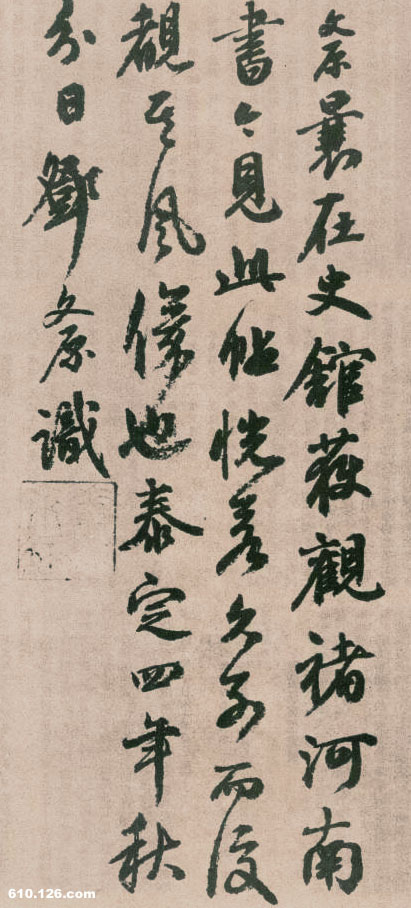 文原曩在史館獲觀褚河南
書今見此帖恍若久別而復
覩其風儀也泰定四年秋
分日鄧文原識
610.126.com